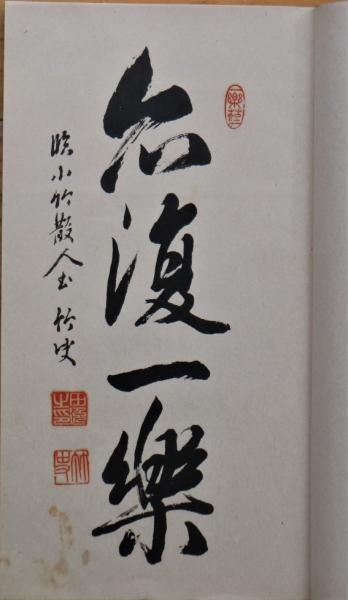 亦復一樂
臨小竹散人書 竹叟